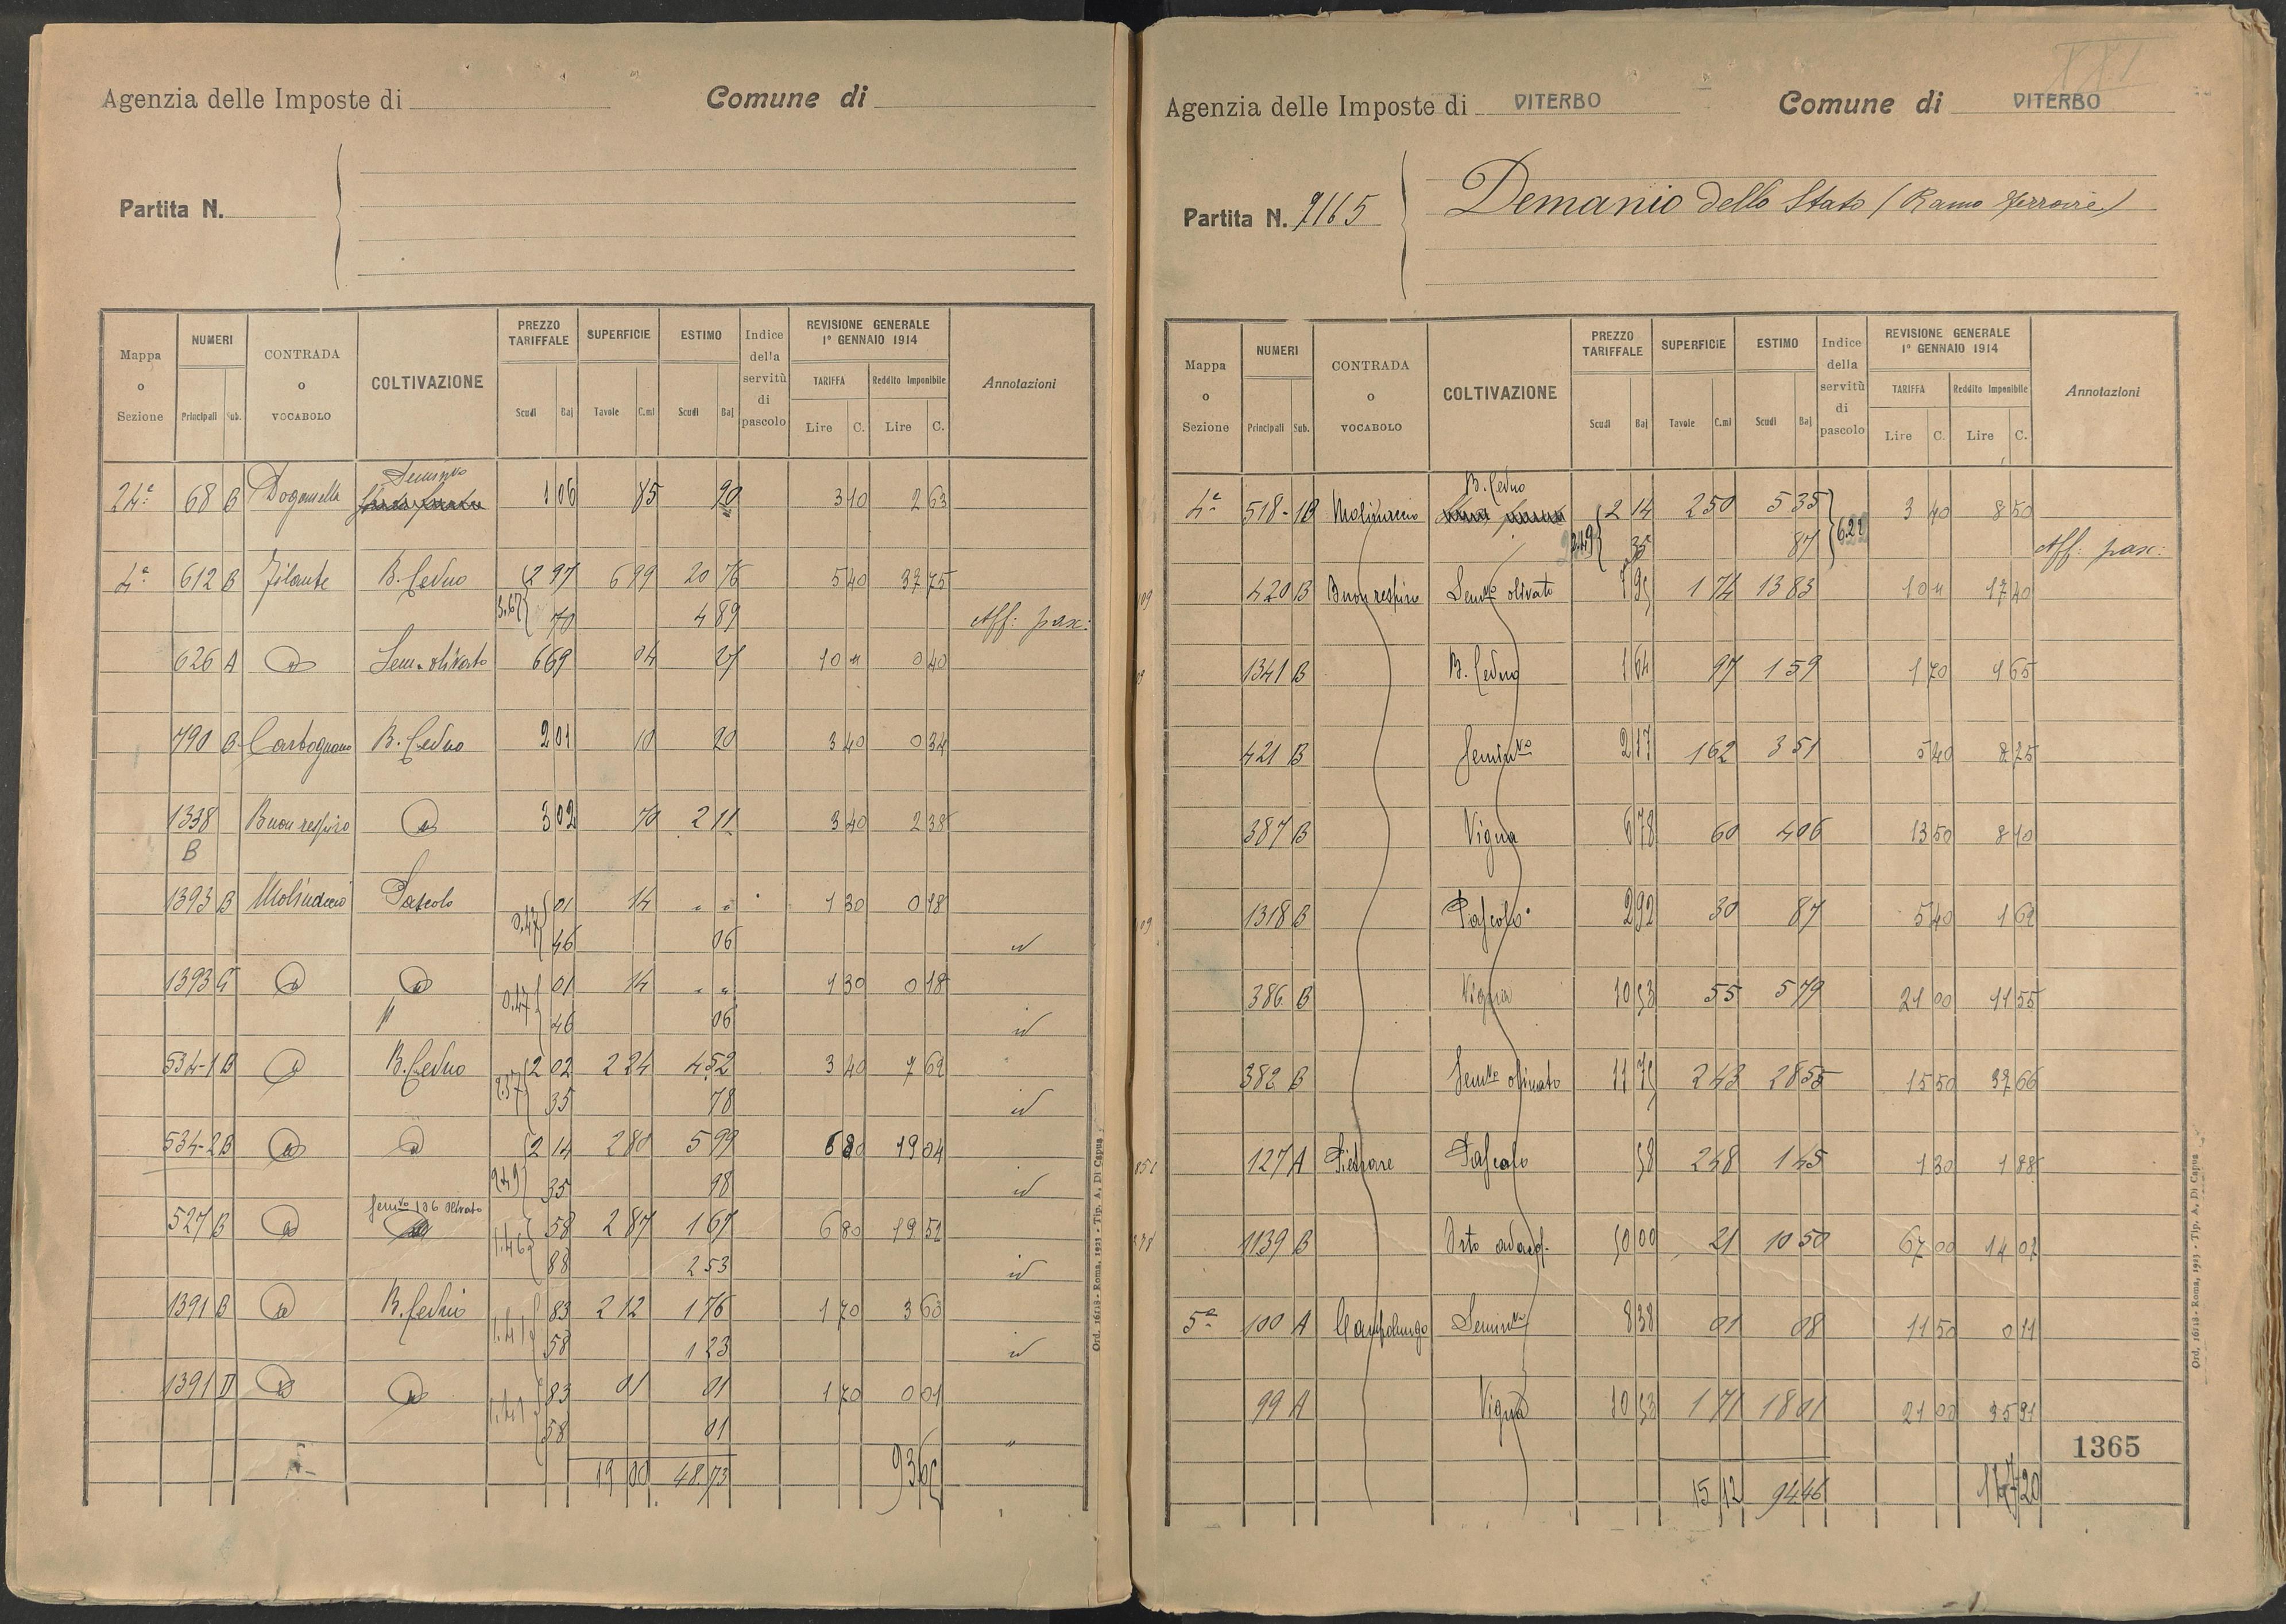 Agenzia delle Imposte di
Comune di
Partita N.
Mappa o Sezione | NUMERI Principali Sub. | CONTRADA o VOCABOLO | COLTIVAZIONE | PREZZO TARIFFALE Scudi Baj | SUPERFICIE Tavole C.mi | ESTIMO Scudi Baj | Indice della servitù di pascolo | REVISIONE GENERALE 1° GENNAIO 1914 TARIFFA Lire C. Reddito Imponibile Lire C. | Annotazioni
Semin.vo
24ª 68 B Doganella 1 06 85 90 3 10 2 63
4ª 612 B Filante B. Ceduo 2 97 6 99 20 76 5 40 37 75
3.67 70 4 89 Aff: pasc:
626 A d Sem. olivato 6 69 04 27 10 " 0 40
790 B Carbognano B. Ceduo 2 01 10 20 3 40 0 34
1338 Buon respiro d 3 02 70 2 11 3 40 2 38
B
1393 B Molinaccio Pascolo 01 14 " " 1 30 0 18
0.47 46 06 id
1393 G d d 01 14 " " 1 30 0 18
" 0.47 46 06 id
534-1 B d B. Ceduo 2 02 2 24 4 52 3 40 7 62
2.37 35 78 id
534-2 B d d 2 14 2 80 5 99 6 80 19 04
2.49 35 98 id
Sem.vo 106 Olivato
527 B d 58 2 87 1 67 6 80 19 52
1.46 88 2 53 id
1391 B d B. Ceduo 83 2 12 1 76 1 70 3 60
1.41 58 1 23 id
1391 D d d 83 01 01 1 70 0 01
1.41 58 01 "
19 00 48.73 93 65
Ord. 16118 - Roma, 1923 - Tip. A. Di Capua
XXI
Agenzia delle Imposte di VITERBO
Comune di VITERBO
Partita N. 7165
Demanio dello Stato (Ramo Ferrovie)
Mappa o Sezione | NUMERI Principali Sub. | CONTRADA o VOCABOLO | COLTIVAZIONE | PREZZO TARIFFALE Scudi Baj | SUPERFICIE Tavole C.mi | ESTIMO Scudi Baj | Indice della servitù di pascolo | REVISIONE GENERALE 1° GENNAIO 1914 TARIFFA Lire C. Reddito Imponibile Lire C. | Annotazioni
B. Ceduo
4ª 518-1 B Molinaccio 2 14 2 50 5 35 3 40 8 50
2.49 35 87 6.22 Aff: pasc:
420 B Buon respiro Sem.vo olivato 7 95 1 74 13 83 10 " 17 40
1341 B B. Ceduo 1 64 97 1 59 1 70 1 65
421 B Semin.vo 2 17 1 62 3 51 5 40 8 75
387 B Vigna 6 78 60 4 06 13 50 8 10
1318 B Pascolo 2 92 30 87 5 40 1 62
386 B Vigna 10 53 55 5 79 21 00 11 55
382 B Sem.vo olivato 11 75 2 43 28 55 15 50 37 66
127 A Pietrare Pascolo 58 2 48 1 45 1 30 1 88
1139 B Orto adacq. 50 00 21 10 50 67 00 14 07
5ª 100 A Campolungo Semin.vo 8 38 01 08 11 50 0 11
99 A Vigna 10 53 1 71 18 01 21 00 35 91
1365
15 12 94 46 147 20
Ord. 16118 - Roma, 1923 - Tip. A. Di Capua